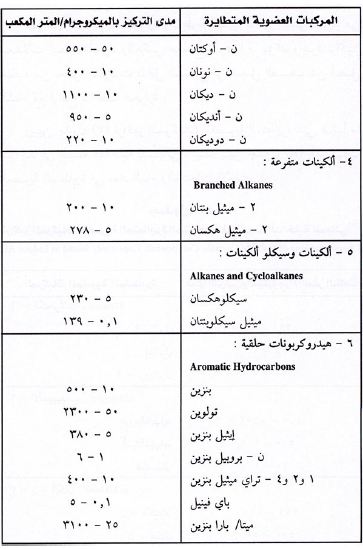 المركبات العضوية المتطايرة	مدى التركيز بالميكروجرام/المتر المكعب
ن - أوكتان	٥٠ - ٥٥٠
ن - نونان	١٠ - ٤٠٠
ن - ديكان	١٠ - ١١٠٠
ن - أنديكان	٥ - ٩٥٠
ن - دوديكان	١٠ - ٢٢٠
٤- ألكينات متفرعة :
Branched Alkanes
٢ - ميثيل بنتان	١٠ - ٢٠٠
٢ - ميثيل هكسان	٥ - ٢٧٨
٥ - ألكينات وسيكلو ألكينات :
Alkanes and Cycloalkanes
سيكلوهكسان	٥ - ٢٣٠
ميثيل سيكلوبنتان	٠,١ - ١٣٩
٦ - هيدروكربونات حلقية :
Aromatic Hydrocarbons
بنزين	١٠ - ٥٠٠
تولوين	٥٠ - ٢٣٠٠
إيثيل بنزين	٥ - ٣٨٠
ن - بروبيل بنزين	١ - ٦
١ و٢ و٤ - تراي ميثيل بنزين	١٠ - ٤٠٠
باي فينيل	٠,١ - ٥
ميتا/ بارا بنزين	٢٥ - ٣١٠٠